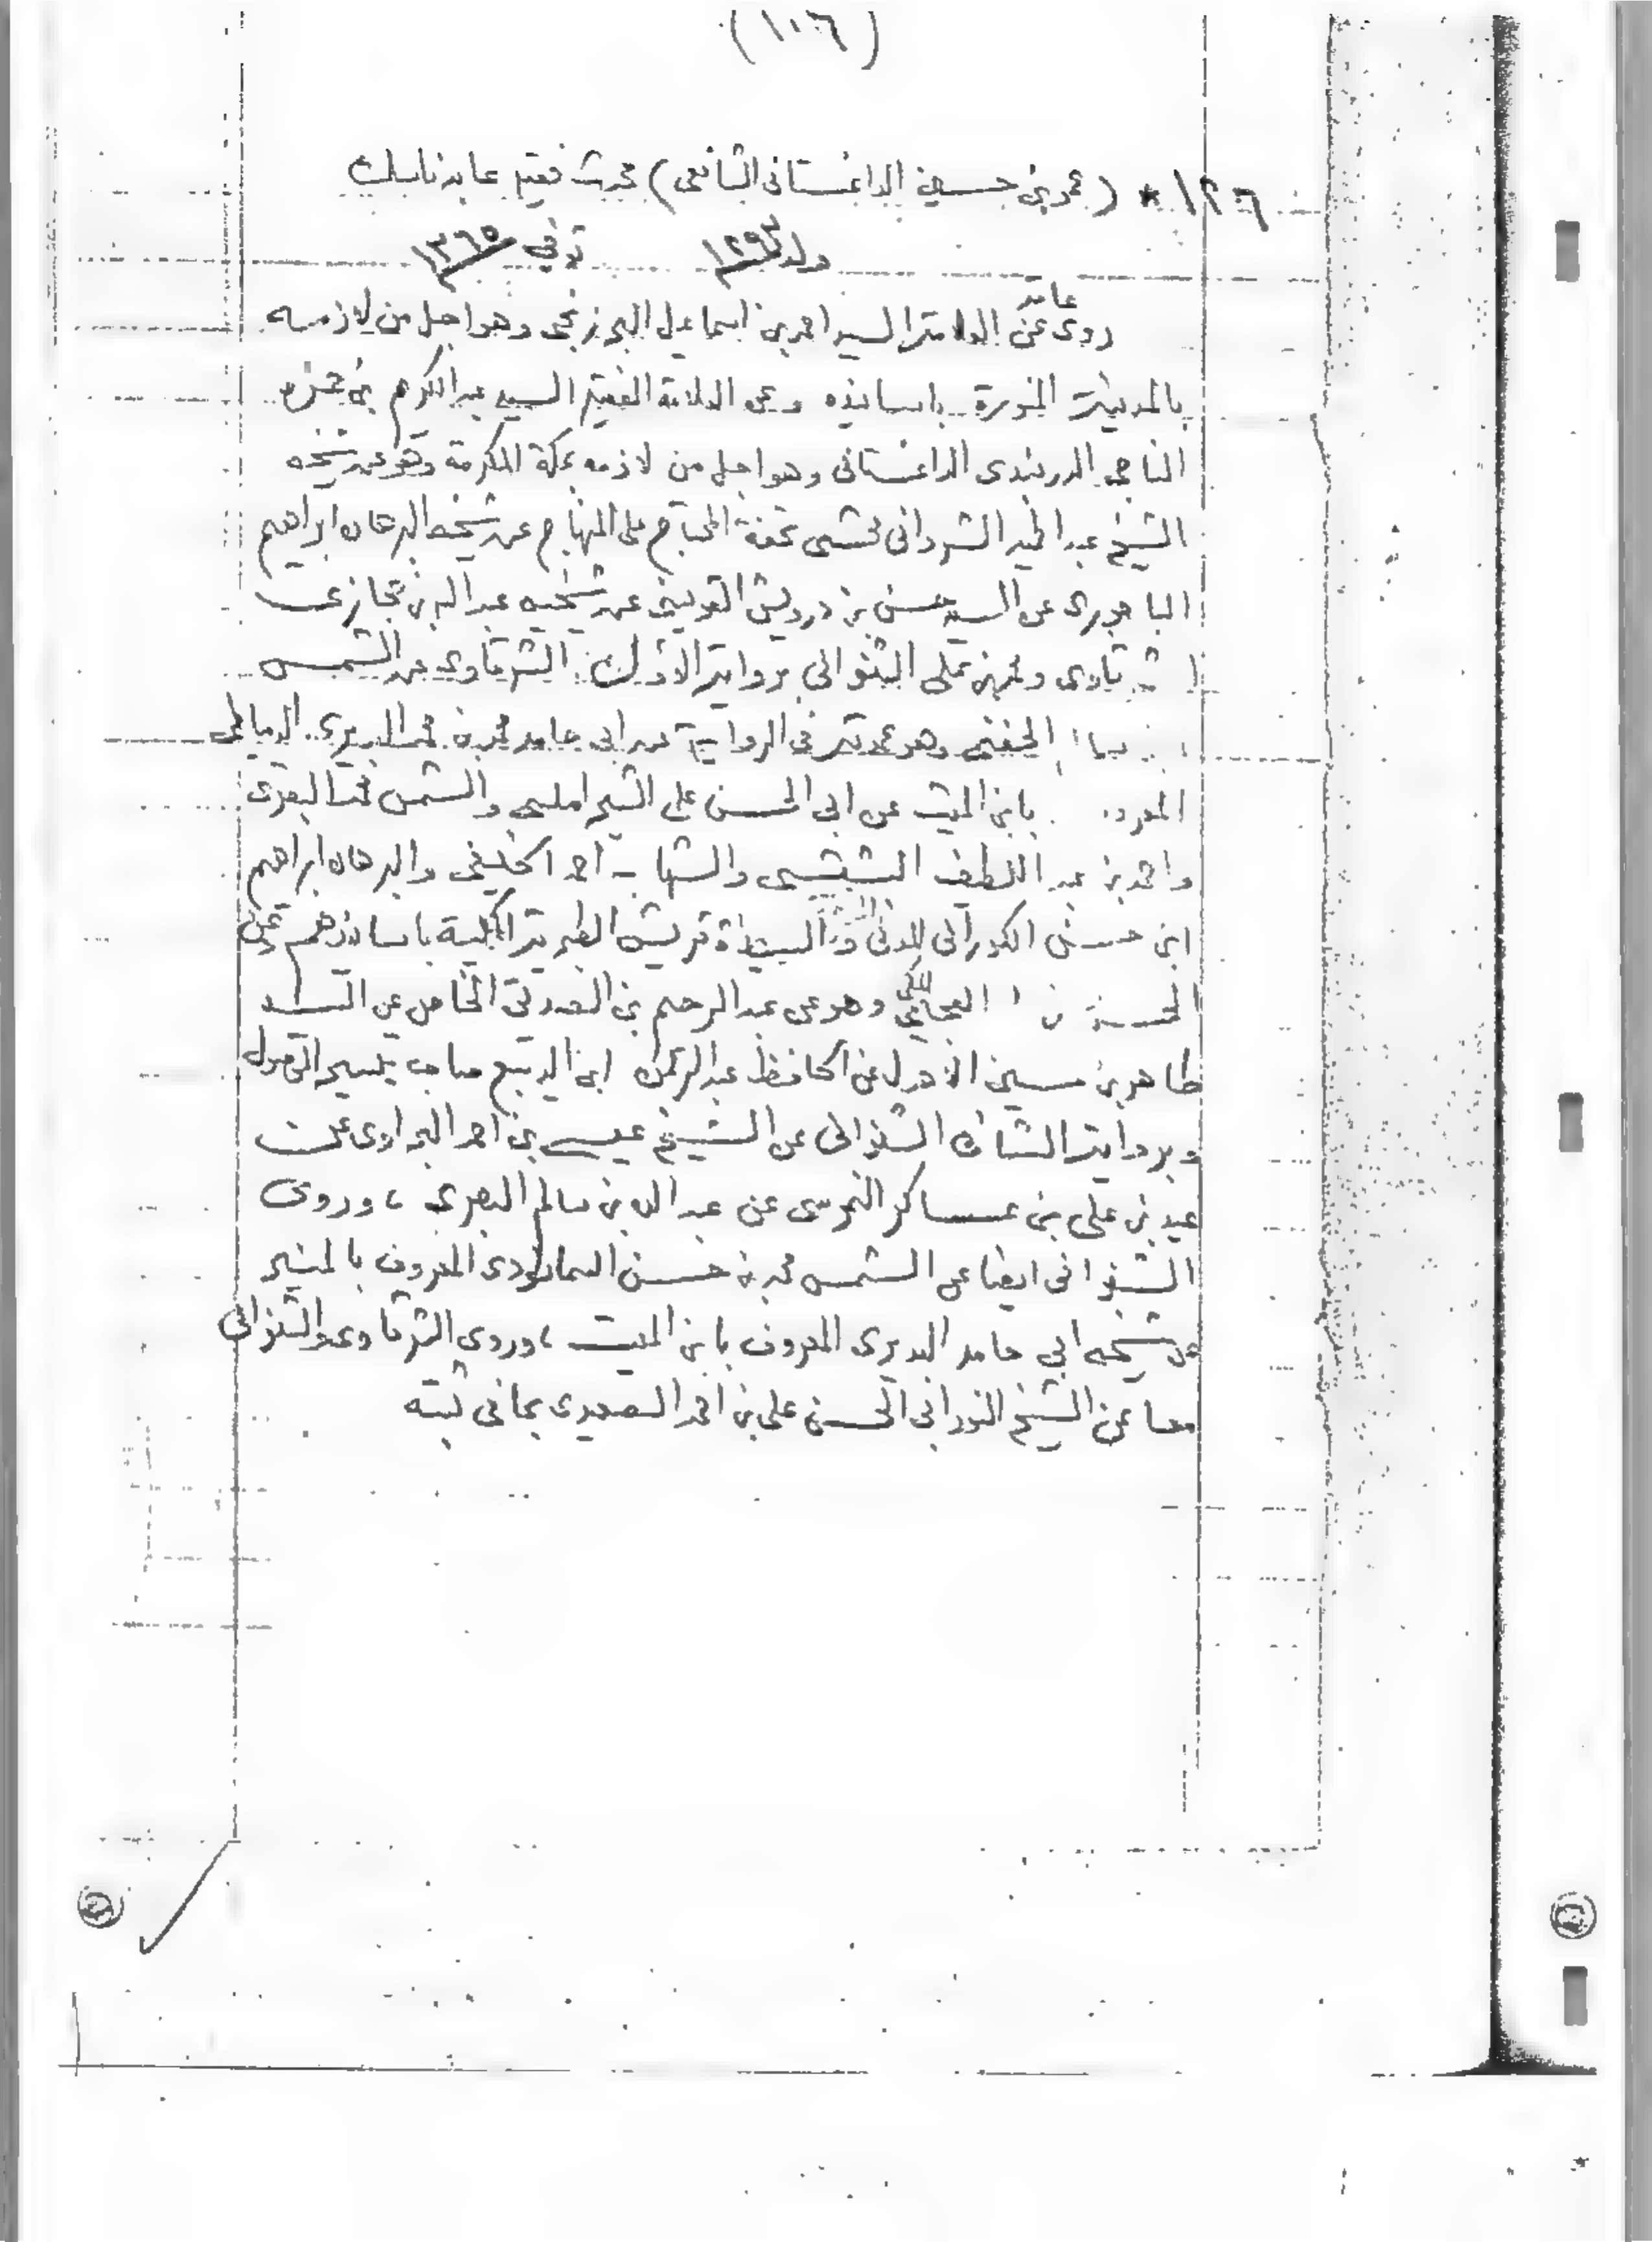 (١٠٦)
١٢٦ * (محمد بن حسين الداغستاني الشافعي) محدث فقيه عابد ناسك
ولد ١٢٩٣ توفي ١٣٦٥
روى عامة عن العلامة السيد احمد بن اسماعيل البرزنجي وهو اجل من لازمه
بالمدينة المنورة باسانيذه وعن العلامة الفقيه السيد عبد الكريم بن حمزه
الناجي الدربندي الداغستاني وهو اجل من لازمه بمكة المكرمة وهو عن شيخه
الشيخ عبد الحميد الشرواني محشي تحفة المحتاج على المنهاج عن شيخه البرهان ابراهيم
الباجوري عن السيد حسن بن درويش القويني عن شيخيه عبد الله بن حجازي
الشرقاوي ومحمد بن علي الشنواني برواية الاول الشرقاوي عن الشمس
الحفني وهو عمدته في الرواية عن ابي حامد محمد بن محمد البديري الدمياطي
المعروف بابن الميت عن ابي الحسن علي الشبراملسي والشمس محمد البقري
واحمد بن عبد اللطيف البشبيشي والشهاب احمد الخليفي والبرهان ابراهيم
ابن حسن الكوراني المدني والسيدة قريش الطبرية المكية باسانيذهم عن
الحسن بن العجيمي المكي وهو عن عبد الرحيم بن الصديق الخاص عن السيد
طاهر بن حسين الاهدل عن الحافظ عبد الرحمن ابن الديبع صاحب تيسير الوصول
وبرواية الثاني الشنواني عن الشيخ عيسى بن احمد البراوي عن
عيد بن علي بن عساكر النمرسي عن عبد الله بن سالم البصري ، وروى
الشنواني ايضا عن الشمس محمد بن حسن السمانودي المعروف بالمنير
عن شيخه ابي حامد البديري المعروف بابن الميت ، وروى الشرقاوي والشنواني
معا عن الشيخ النور ابي الحسن علي بن احمد الصعيدي بما في ثبته